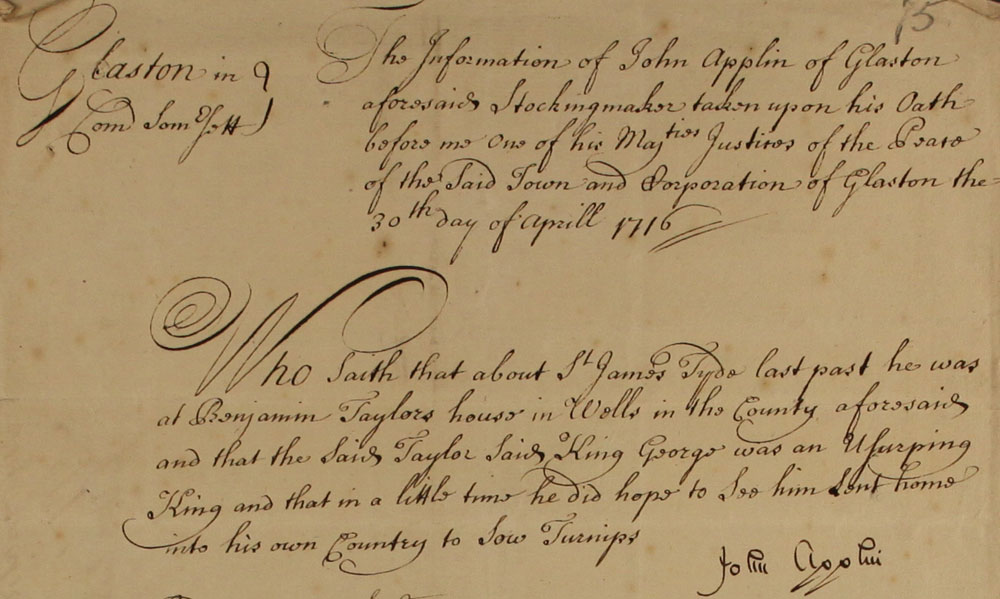 75
Glaston in
Com̄ Som̄ersett
The Information of John Applin of Glaston
aforesaid Stockingmaker taken upon his Oath
before me One of his Majties Justices of the Peace
of the Said Town and Corporation of Glaston the
30th day of Aprill 1716
Who Saith that about St James Tyde last past he was
at Benjamin Taylors house in Wells in the County aforesaid
and that the Said Taylor Said King George was an Usurping
King and that in a little time he did hope to See him Sent home
into his own Country to Sow Turnips
John Applin